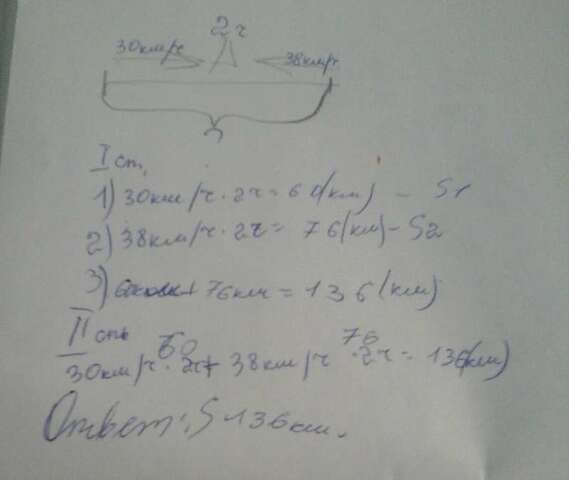 2ч
30км/ч 38км/ч
I сп.
1) 30км/ч · 2ч = 60(км) - S1
2) 38км/ч · 2ч = 76(км) - S2
3) 60км + 76км = 136(км)
II сп.
60 76
30км/ч · 2ч + 38км/ч · 2ч = 136(км)
Ответ: S 136км.